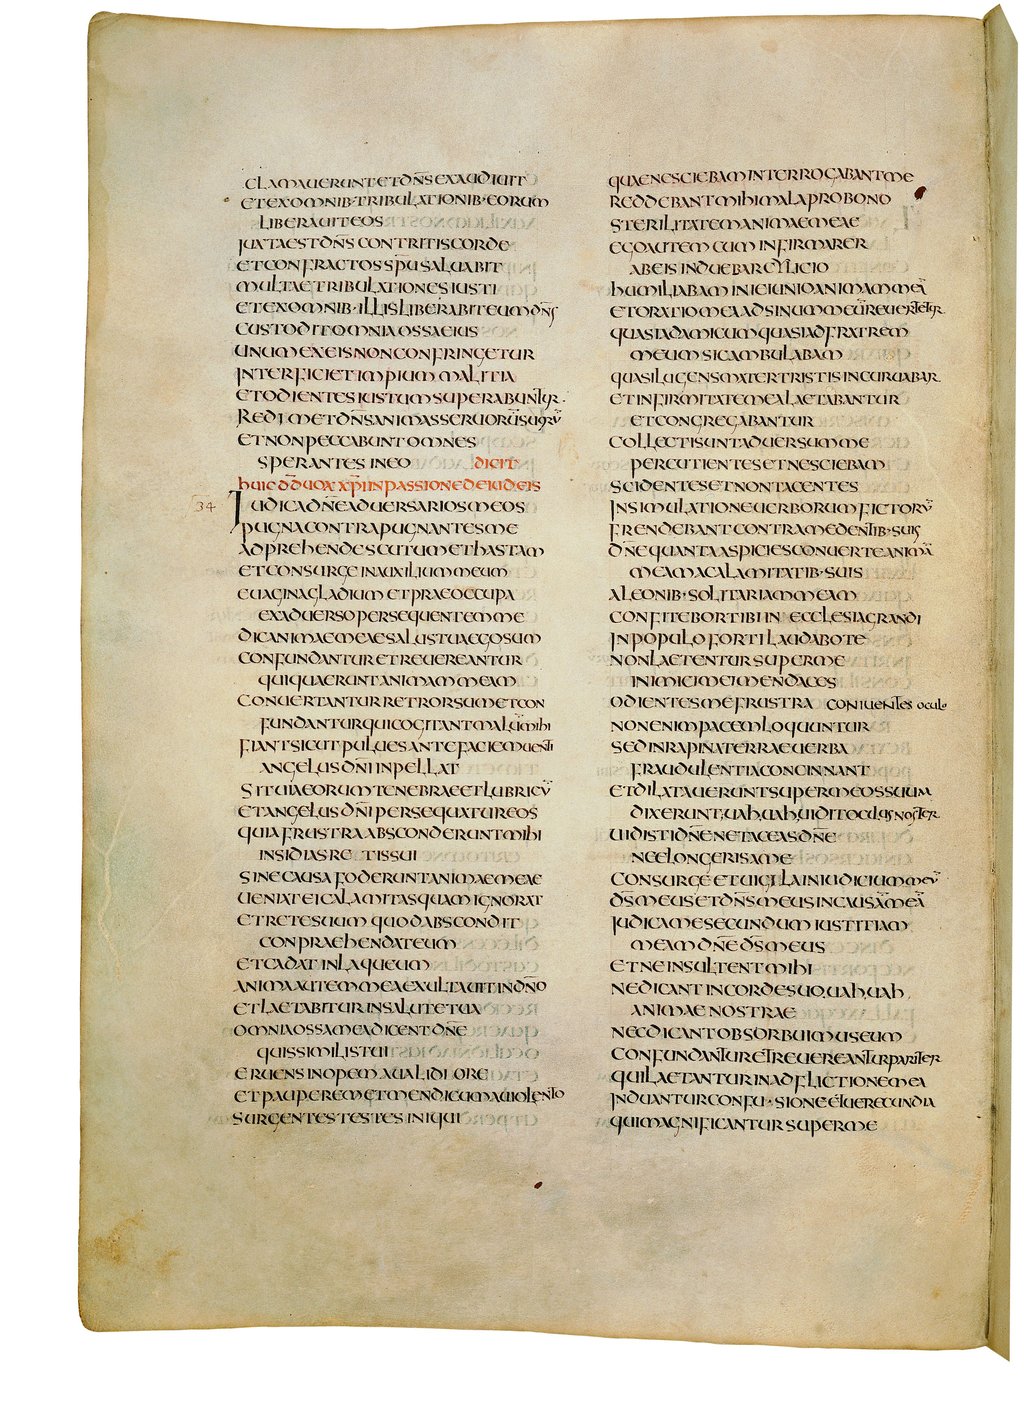 CLAMAUERUNT ET DN̄S EXAUDIUIT
ET EXOMNIB· TRIBULATIONIB· EORUM
LIBERAUIT EOS
JUXTA EST DN̄S CONTRITIS CORDE
ET CONFRACTOS SP̄U SALUABIT
MULTAE TRIBULATIONES IUSTI
ET EXOMNIB· ILLIS LIBERABIT EUM DN̄S
CUSTODIT OMNIA OSSA EIUS
UNUM EX EIS NON CONFRINGETUR
INTERFICIET IMPIUM MALITIA
ET ODIENTES IUSTUM SUPERABUNTUR·
REDIMET DN̄S ANIMAS SERUORŪ SUORŪ
ET NON PECCABUNT OMNES
SPERANTES IN EO
DICIT
34
JUDICA DN̄E ADUERSARIOS MEOS
PUGNA CONTRA PUGNANTES ME
ADPREHENDE SCUTUM ET HASTAM
ET CONSURGE IN AUXILIUM MEUM
EUAGINA GLADIUM ET PRAEOCCUPA
EX ADUERSO PERSEQUENTEM ME
DIC ANIMAE MEAE SALUS TUA EGO SUM
CONFUNDANTUR ET REUEREANTUR
QUI QUAERUNT ANIMAM MEAM
CONUERTANTUR RETRORSUM ET CON
FUNDANTUR QUI COGITANT MALŪ MIHI
FIANT SICUT PULUES ANTE FACIEM UENTI
ANGELUS DN̄I INPELLAT
SIT UIA EORUM TENEBRAE ET LUBRICŪ
ET ANGELUS DN̄I PERSEQUATUR EOS
QUIA FRUSTRA ABSCONDERUNT MIHI
INSIDIAS RETIS SUI
SINE CAUSA FODERUNT ANIMAE MEAE
UENIAT EI CALAMITAS QUAM IGNORAT
ET RETE SUUM QUOD ABSCONDIT
CONPRAEHENDAT EUM
ET CADAT IN LAQUEUM
ANIMA AUTEM MEA EXULTAUIT IN DN̄O
ET LAETABITUR IN SALUTE TUA
OMNIA OSSA MEA DICENT DN̄E
QUIS SIMILIS TUI
ERUENS INOPEM A UALIDIORE
ET PAUPEREM ET MENDICUM A UIOLENTO
SURGENTES TESTES INIQUI
QUAE NESCIEBAM INTERROGABANT ME
REDDEBANT MIHI MALA PRO BONO
STERILITATEM ANIMAE MEAE
EGO AUTEM CUM INFIRMARER
AB EIS INDUEBAR CYLICIO
HUMILIABAM IN IEIUNIO ANIMAM MEĀ
ET ORATIO MEA AD SINUM MEŪ REUERTETUR
QUASI AD AMICUM QUASI AD FRATREM
MEUM SIC AMBULABAM
QUASI LUGENS MATER TRISTIS INCURUABAR
ET IN FIRMITATE MEA LAETABANTUR
ET CONGREGABANTUR
COLLECTI SUNT ADUERSUM ME
PERCUTIENTES ET NESCIEBAM
SCIDENTES ET NON TACENTES
IN SIMULATIONE UERBORUM FICTORŪ
FRENDEBANT CONTRA ME DENTIB· SUIS
DN̄E QUANTA ASPICIES CONUERTE ANIMĀ
MEAM A CALAMITATIB· SUIS
A LEONIB· SOLITARIAM MEAM
CONFITEBOR TIBI IN ECCLESIA GRANDI
IN POPULO FORTI LAUDABO TE
NON LAETENTUR SUPER ME
INIMICI MEI MENDACES
ODIENTES ME FRUSTRA CONIUENTES OCULO
NON ENIM PACEM LOQUUNTUR
SED IN RAPINA TERRAE UERBA
FRAUDULENTIA CONCINNANT
ET DILATAUERUNT SUPER ME OS SUUM
DIXERUNT, UAH, UAH, UIDIT OCULUS NOSTER
UIDISTI DN̄E NE TACEAS DN̄E
NE ELONGERIS A ME
CONSURGE ET UIGILA IN IUDICIUM MEŪ
DS̄ MEUS ET DN̄S MEUS IN CAUSĀ MEĀ
JUDICA ME SECUNDUM IUSTITIAM
MEAM DN̄E DS̄ MEUS
ET NE INSULTENT MIHI
NE DICANT IN CORDE SUO, UAH, UAH,
ANIMAE NOSTRAE
NEC DICANT OBSORBUIMUS EUM
CONFUNDANTUR ET REUEREANTUR PARITER
QUI LAETANTUR IN ADFLICTIONE MEA
INDUANTUR CONFUSIONE ET UERECUNDIA
QUI MAGNIFICANTUR SUPER ME